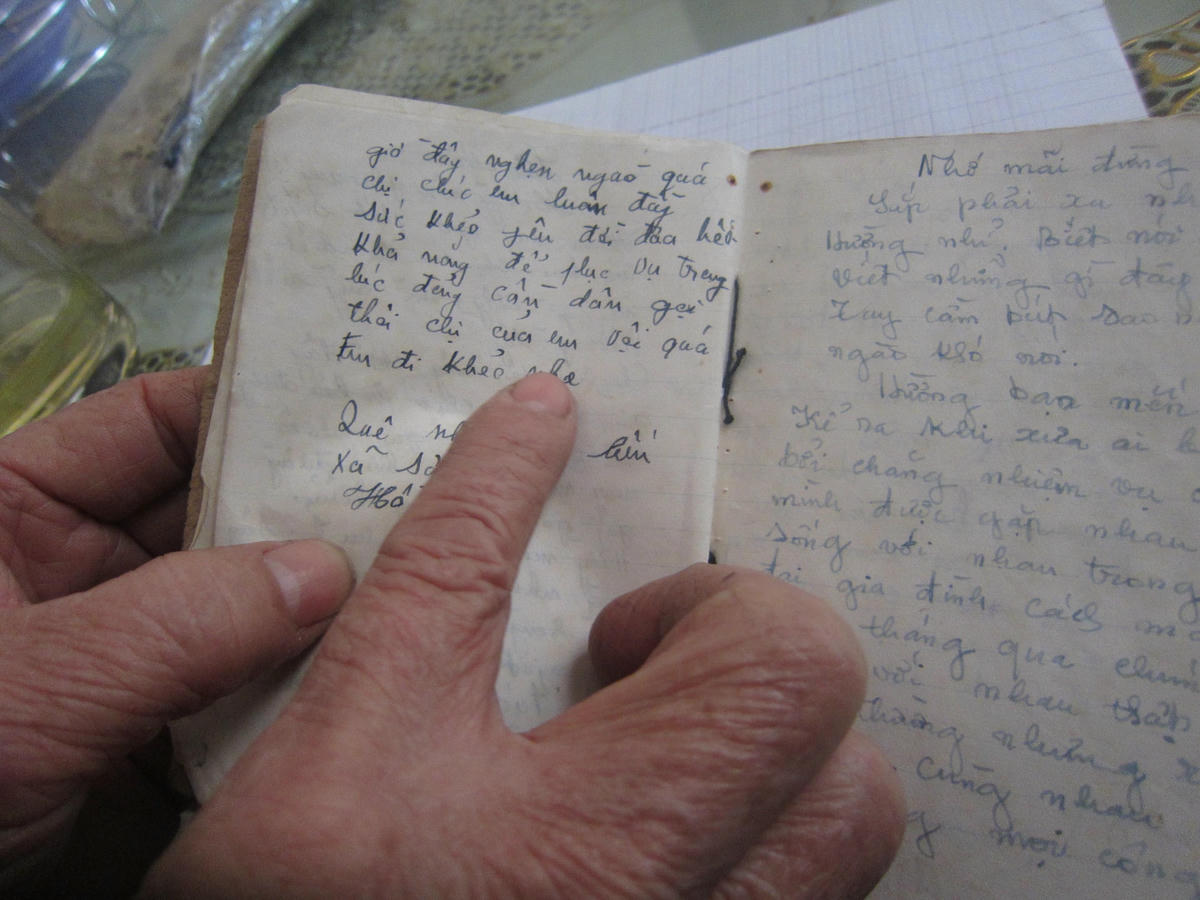 giờ đây nghẹn ngào quá
chị chúc em luôn đầy
sức khỏe yêu đời đưa hết
khả năng để phục vụ trong
lúc đang cần dân gọi
thôi chị của em vội quá
Em đi khỏe nhe
Quê
Xã
Nhớ mãi đừng
Sắp phải xa nh
Hường nhỉ. Biết nói
viết những gì đây
Tay cầm bút sao n
ngào khó nói.
Hường bạn mến
Kể ra khi xưa ai
bởi chăng nhiệm vụ
mình được gặp nhau
sống với nhau trong
đại gia đình cách m
tháng qua chún
với nhau thật
những
cùng nhau
mọi công